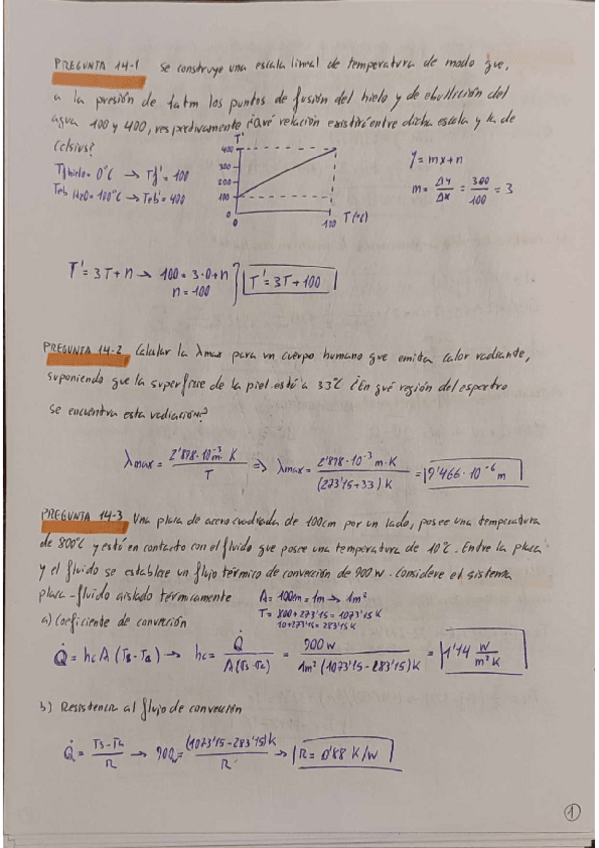 PREGUNTA 14-1 Se construye una escala lineal de temperatura de modo que,
a la presión de 1atm los puntos de fusión del hielo y de ebullición del
agua 100 y 400, respectivamente ¿Qué relación existirá entre dicha escala y la de
Celsius?
Tf hielo = 0°C → Tf' = 100
Teb H2O = 100°C → Teb' = 400
T'
400
300
200
100
0
0
100
T (°C)
y = mx + n
m = Δy/Δx = 300/100 = 3
T' = 3T + n → 100 = 3·0 + n
n = 100
T' = 3T + 100
PREGUNTA 14-2 Calcular la λmax para un cuerpo humano que emita calor radiante,
suponiendo que la superficie de la piel está a 33°C ¿En qué región del espectro
se encuentra esta radiación?
λmax = 2'898·10⁻³ m K / T ⇒ λmax = 2'898·10⁻³ m·K / (273'15+33) K = 9'466·10⁻⁶ m
PREGUNTA 14-3 Una placa de acero cuadrada de 100cm por un lado, posee una temperatura
de 800°C y está en contacto con el fluido que posee una temperatura de 10°C. Entre la placa
y el fluido se establece un flujo térmico de convección de 900 W. Considere el sistema
placa-fluido aislado térmicamente A = 100m = 1m → 1m²
T = 800+273'15 = 1073'15 K
10+273'15 = 283'15 K
a) Coeficiente de convección
Q̇ = hc A (Ts - Ta) → hc = Q̇ / A(Ts-Ta) = 900 W / 1m² (1073'15 - 283'15) K = 1'14 W/m² K
b) Resistencia al flujo de convección
Q̇ = Ts-Ta / R → 900 = (1073'15 - 283'15) K / R → R = 0'88 K/W
1